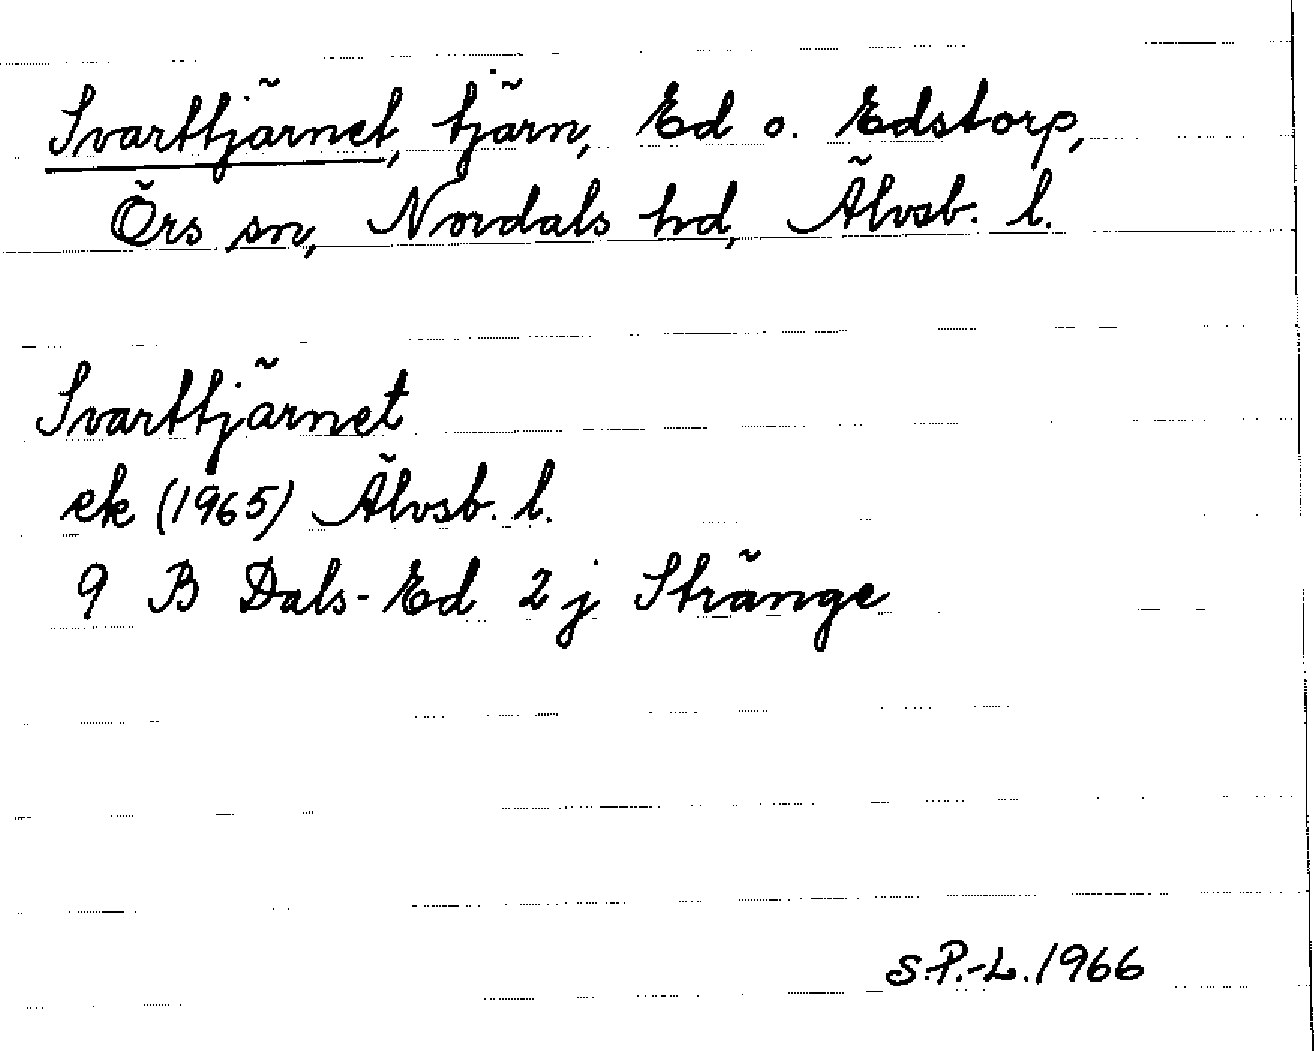 Svarttjärnet, tjärn, Ed o. Edstorp,
Örs sn, Nordals hd, Älvsb. l.
Svarttjärnet
ek (1965) Älvsb. l.
9 B Dals-Ed 2 j Stränge
S.P.-L. 1966